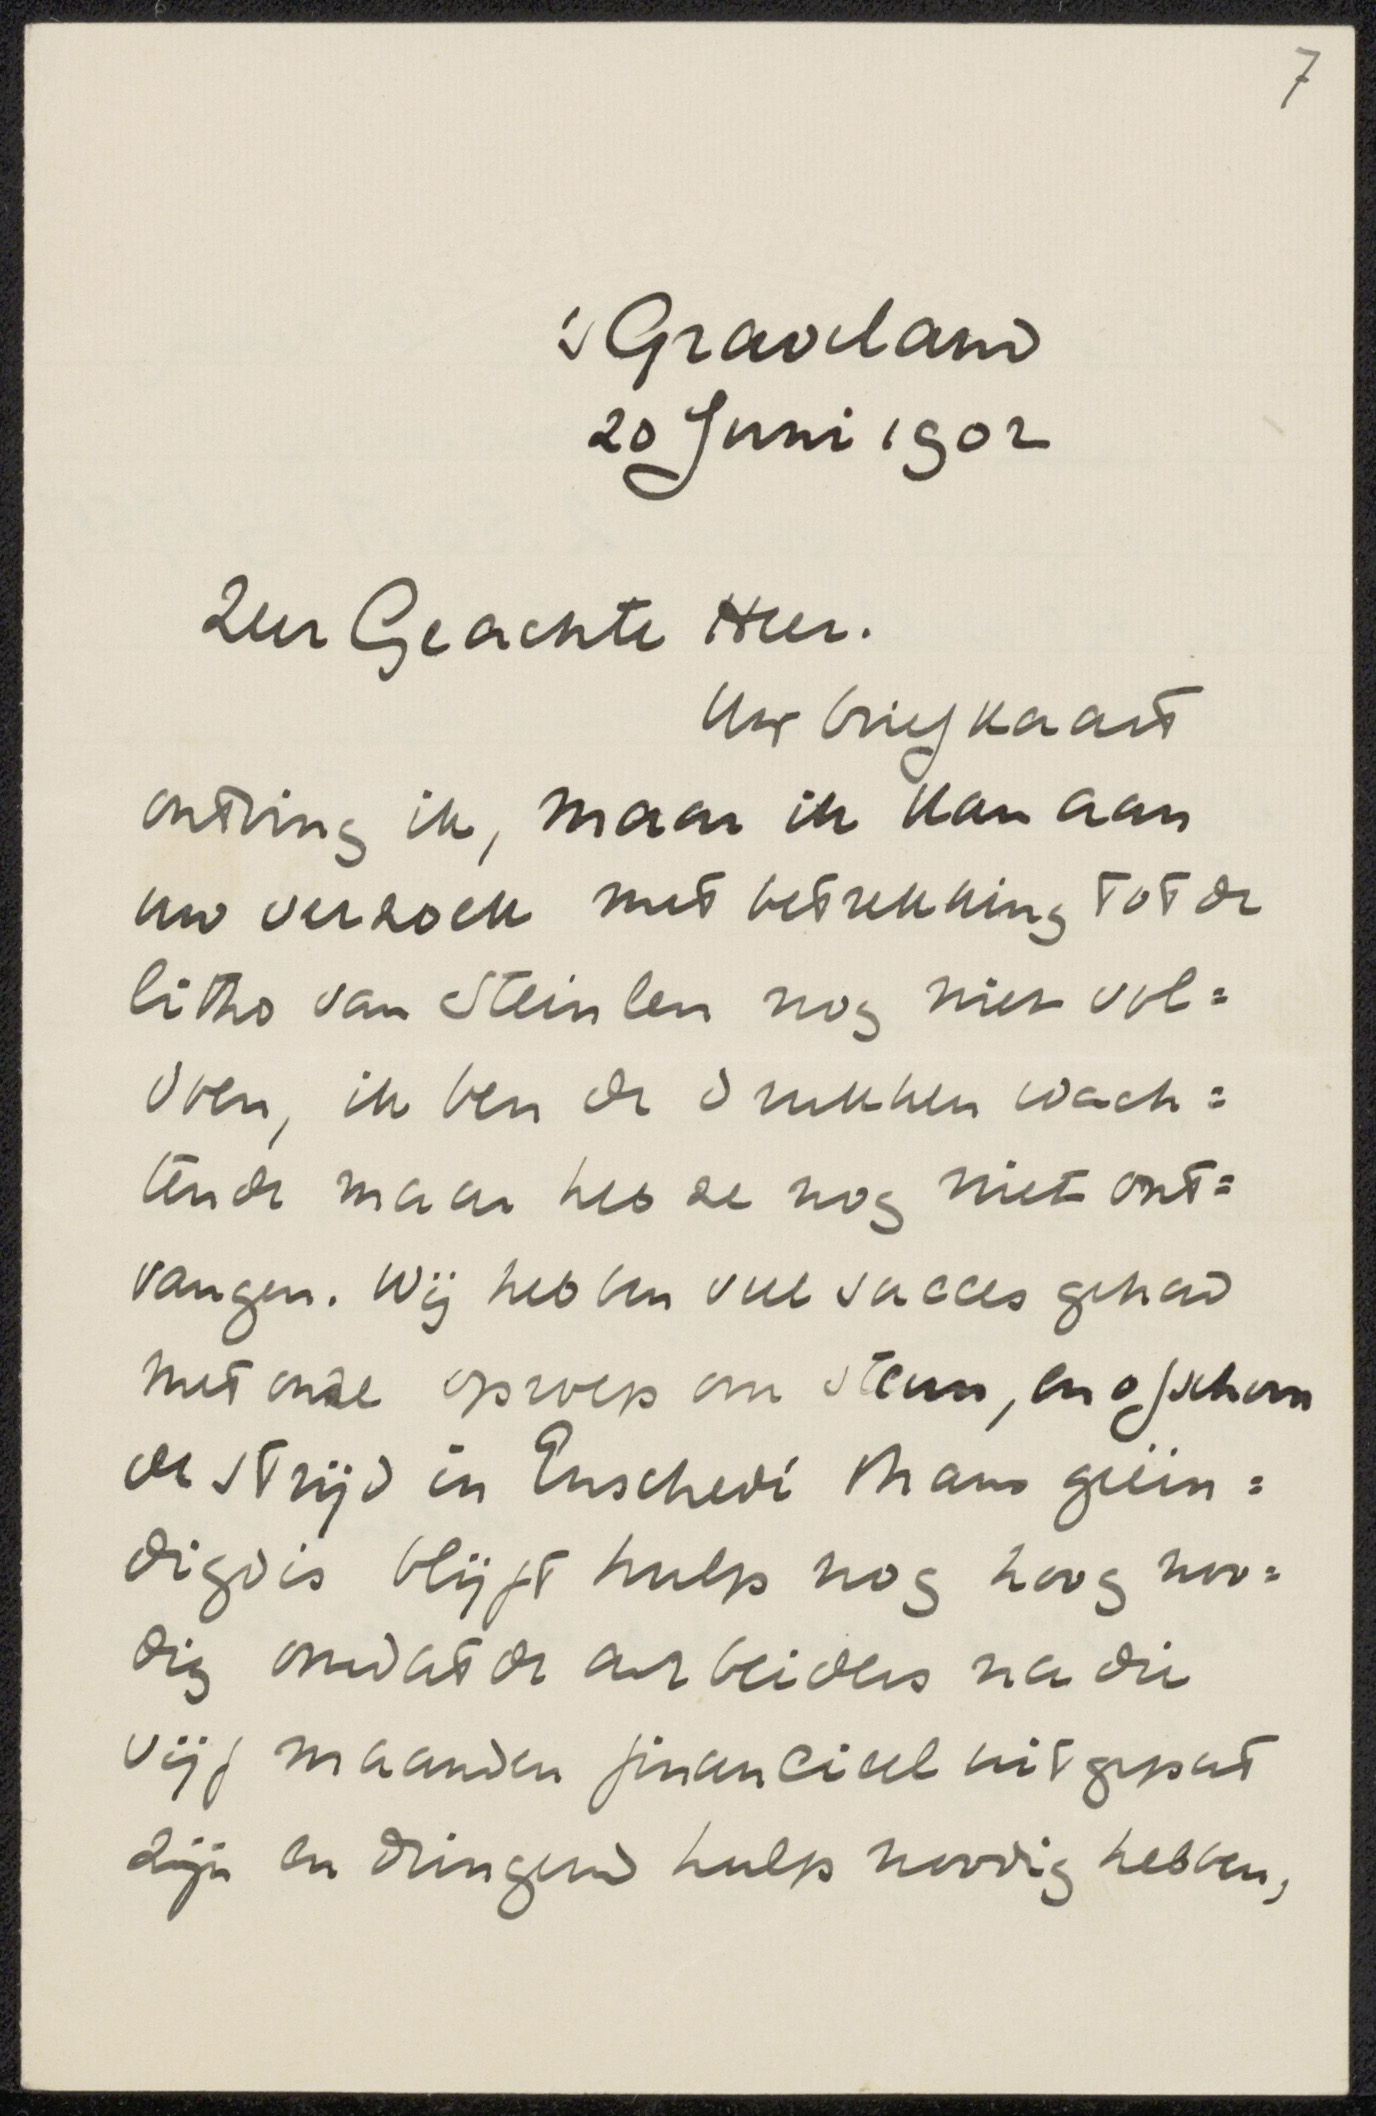 7
's Graveland
20 Juni 1902
Zeer Geachte Heer.
Uw briefkaart
ontving ik, maar ik kan aan
uw verzoek met betrekking tot de
litho van Steinlen nog niet vol=
doen, ik ben de drukken wach=
tende maar heb ze nog niet ont=
vangen. Wij hebben veel succes gehad
met onze oproep om steun, en ofschoon
de strijd in Enschedé thans geëin=
digd is blijft hulp nog hoog noo=
dig omdat de arbeiders na die
vijf maanden financieel uitgeput
zijn en dringend hulp noodig hebben,